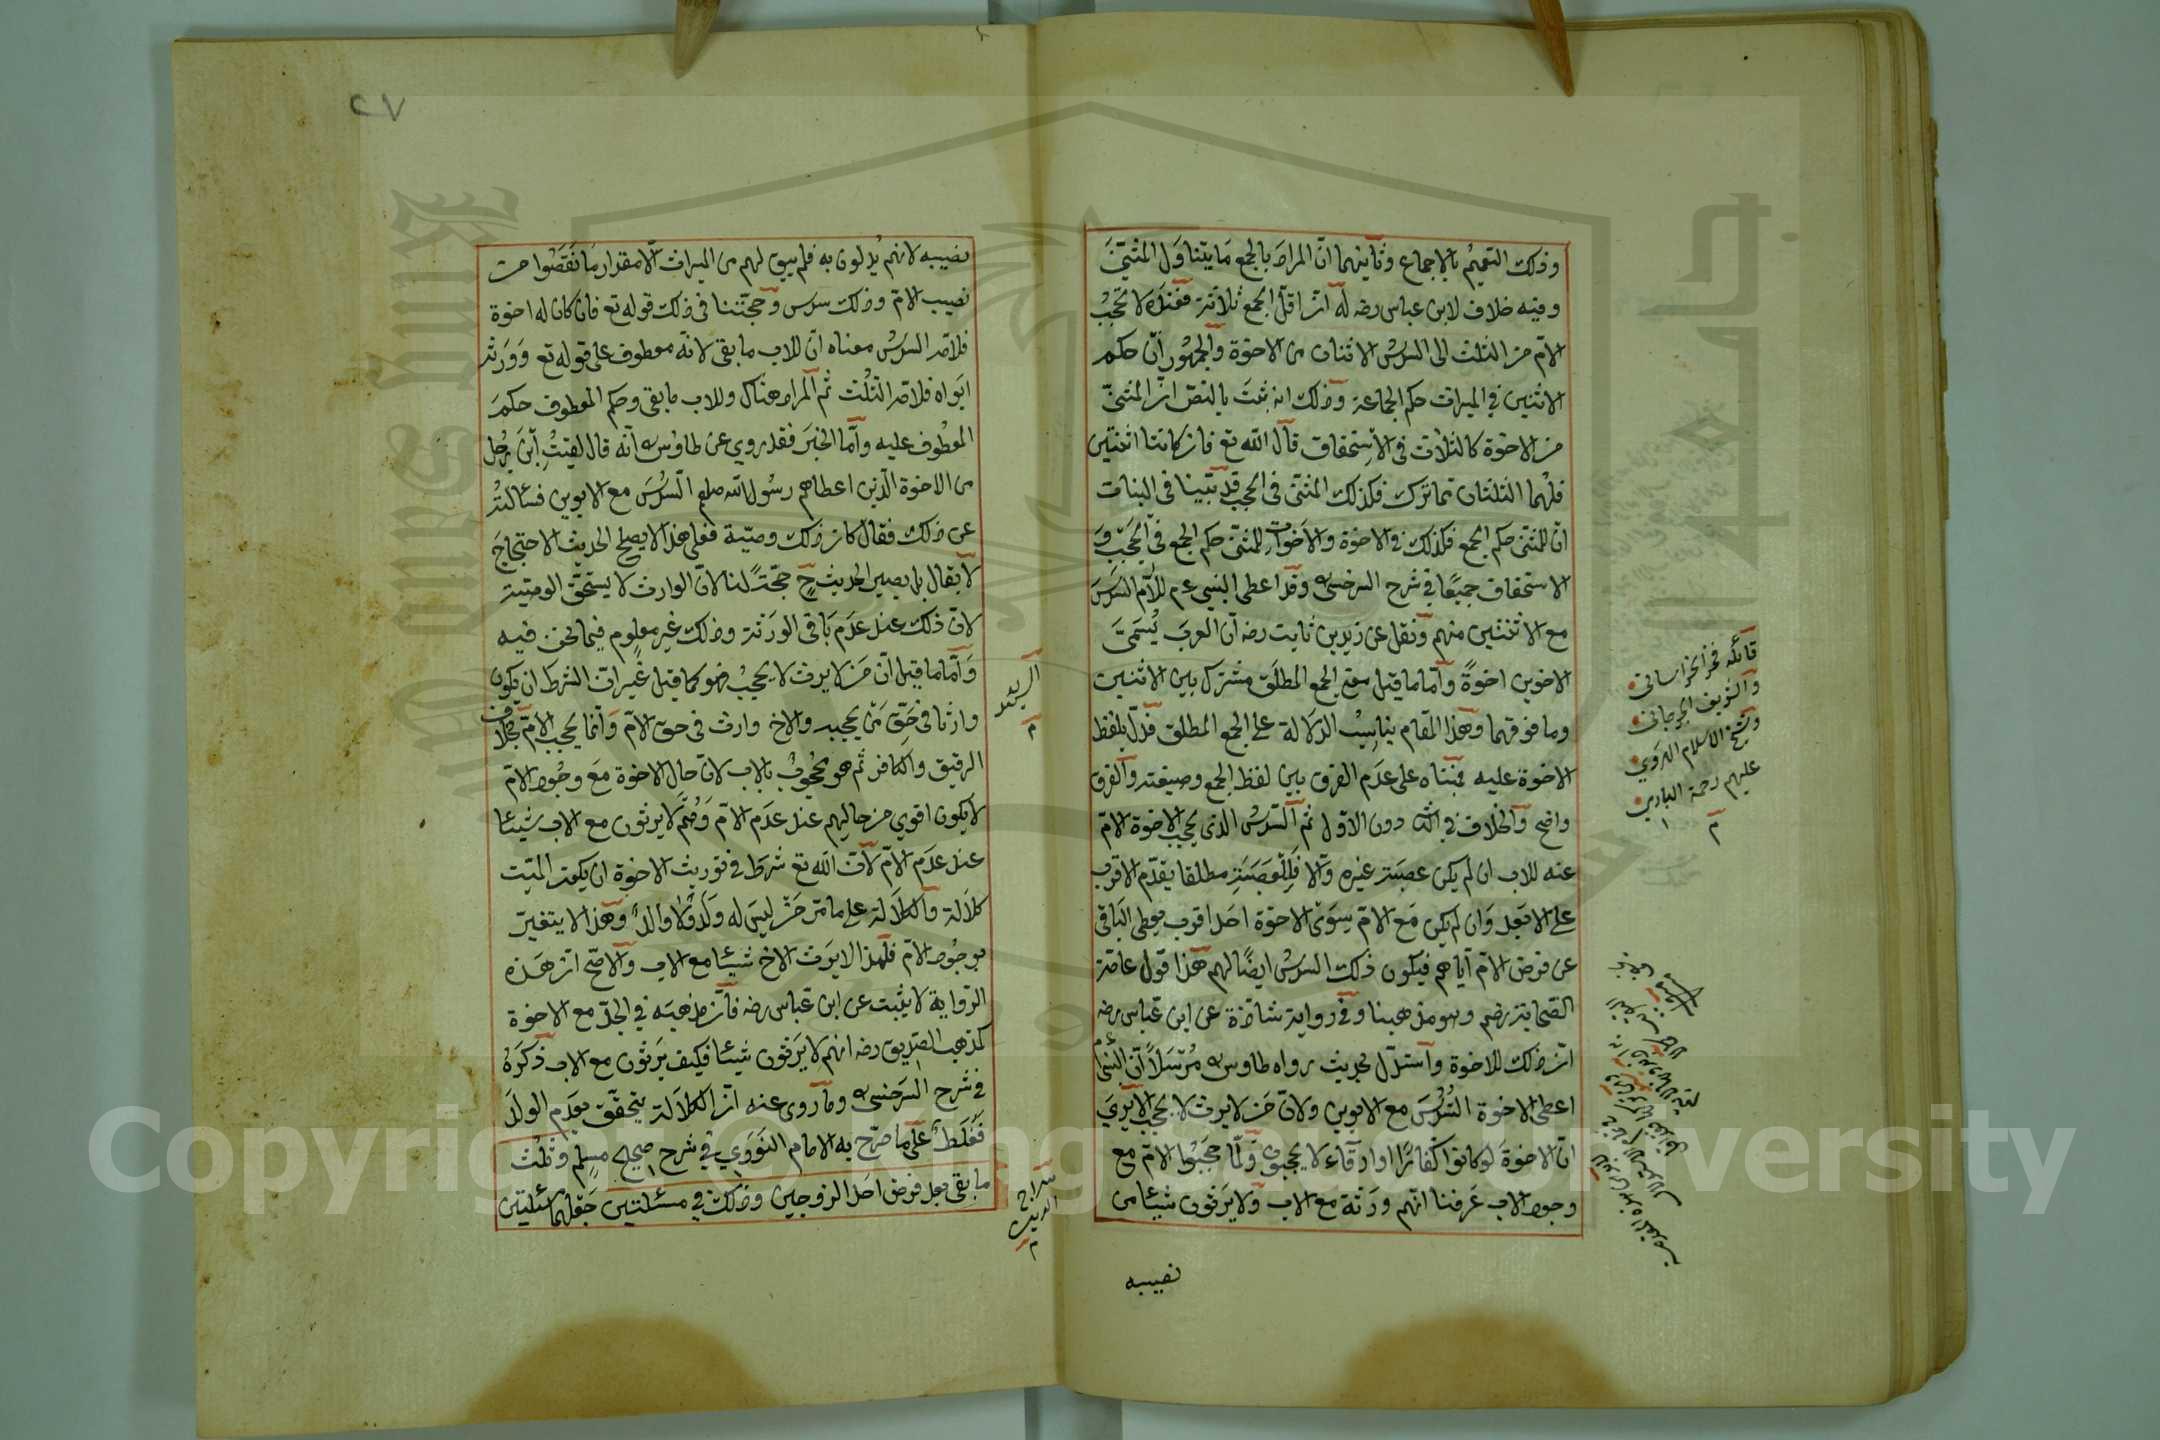 وذلك التعميم بالإجماع وثانيهما انّ المراد بالجمع ما يتناول المثنىّ
وفيه خلاف لابن عباس رضه له انّ اقلّ الجمع ثلاثة فعنده لا تحجبُ
الامّ من الثلث الى السدس الاثنان من الاخوة والجمهور انّ حكم
الاثنين في الميراث حكم الجماعة وذلك انه ثبت بالنصّ انّ المثنىّ
من الاخوة كالثلاث في الاستحقاق قال الله تع فان كانتا اثنتين
فلهما الثلثان مما ترك فكذلك المثنىّ في الحجب قد تبيّنا في البنات
انّ للمثنىّ حكم الجمع فكذلك في الاخوة والاخوات للمثنىّ حكم الجمع في الحجب و
الاستحقاق جميعًا في شرح السرخسى وقد اعطى النبي عم للامّ السدس
مع الاثنتين منهم ونقل عن زيد بن ثابت رضه انّ العرب يُسمىّ
الاخوين اخوةً وأما ما قيل معنى الجمع المطلق مشترك بين الاثنين
وما فوقهما وهذا المقام يناسب الدلالة على الجمع المطلق فدلّ بلفظ
الاخوة عليه فمبناه على عدم الفرق بين لفظ الجمع وصيغته والفرق
واضح والخلاف في الثانى دون الاول ثم السدس الذي يحجب الاخوة الامّ
عنه للاب ان لم يكن عصبة غيره والا فللعصبة مطلقا يقدّم الاقرب
على الابعد وان لم يكن مع الامّ سوى الاخوة احد اقرب يعطى الباقى
عن فرض الامّ اياهم فيكون ذلك السدس ايضًا لهم هذا قول عامّة
الصحابة رضهم وهو مذهبنا وفى رواية شاذة عن ابن عباس رضه
انّ ذلك للاخوة واستدلّ بحديث رواه طاوس مُرسَلاً انّ النبى عم
اعطى الاخوة السُّدُسَ مع الابوين ولانّ من لا يرث لا يحجب الا يُرى
انّ الاخوة لو كانوا كفارًا او ارقّاء لا يحجبون ولمّا حجبوا الامّ مع
وجود الاب عرفنا انّهم ورثة مع الاب ولا يرثون شيئا من
نصيبه
قائله فخر الخراسانى
والشريف الجرجانى
وشيخ الاسلام الهروى
عليهم رحمة البارى
م
٢٧
نصيبه لانهم يُدلون به فلم يبق لهم من الميراث الّا مقدار ما نقصوا من
نصيب الامّ وذلك سدس وحجّتنا في ذلك قوله تع فان كان له اخوة
فلامّه السدس معناه انّ للاب ما بقى لانه معطوف على قوله تع وورثه
ابواه فلامّه الثلث ثم المراد هناك وللاب ما بقى وحكم المعطوف حكم
المعطوف عليه وأمّا الخبر فقد روي عن طاوس انّه قال لقيتُ ابن رجل
من الاخوة الذين اعطاهم رسول الله صلعم السدس مع الابوين فسألته
عن ذلك فقال كان ذلك وصيّة فعلى هذا لا يصلح الحديث الاحتجاج
لا يقال بل يصير الحديث ح حجّةً لنا لانّ الوارث لا يستحقّ الوصيّة
لانّ ذلك عند عدم باقى الورثة وذلك غير معلوم فيما نحن فيه
وأمّا ما قيل انّ من لا يرث لا يحجب فهو كما قيل غير انّ الشرط ان يكون
وارثا في حقّ من يحجبه والاخ وارث في حق الامّ وانما يحجب الامّ بخلاف
الرقيق والكافر ثم هو محجوبٌ بالاب لانّ حال الاخوة مع وجود الامّ
لا يكون اقوى من حالهم عند عدم الامّ وهُم لا يرثون مع الاب شيئا
عند عدم الامّ لانّ الله تع شرط في توريث الاخوة ان يكون الميّت
كلالة والكلالة على ما مرّ من ليس له ولدٌ ولا والدٌ وهذا لا يتغير
بوجود الامّ فلهذا لا يرث الاخ شيئا مع الاب والاصحّ انّ هذه
الرواية لا يثبت عن ابن عباس رضه فانّ مذهبه في الجدّ مع الاخوة
كمذهب الصّديق رضه انهم لا يرثون شيئا فكيف يرثون مع الاب ذكره
في شرح السرخسى وما روى عنه انّ الكلالة يتحقّق بعدم الولد
فغلطٌ على ما صرّح به الامام النووي في شرح صحيح مسلم وثلث
ما بقى بعد فرض احد الزوجين وذلك في مسئلتين جعلهما مسئلتين
السيد
م
سراج
الدين
م